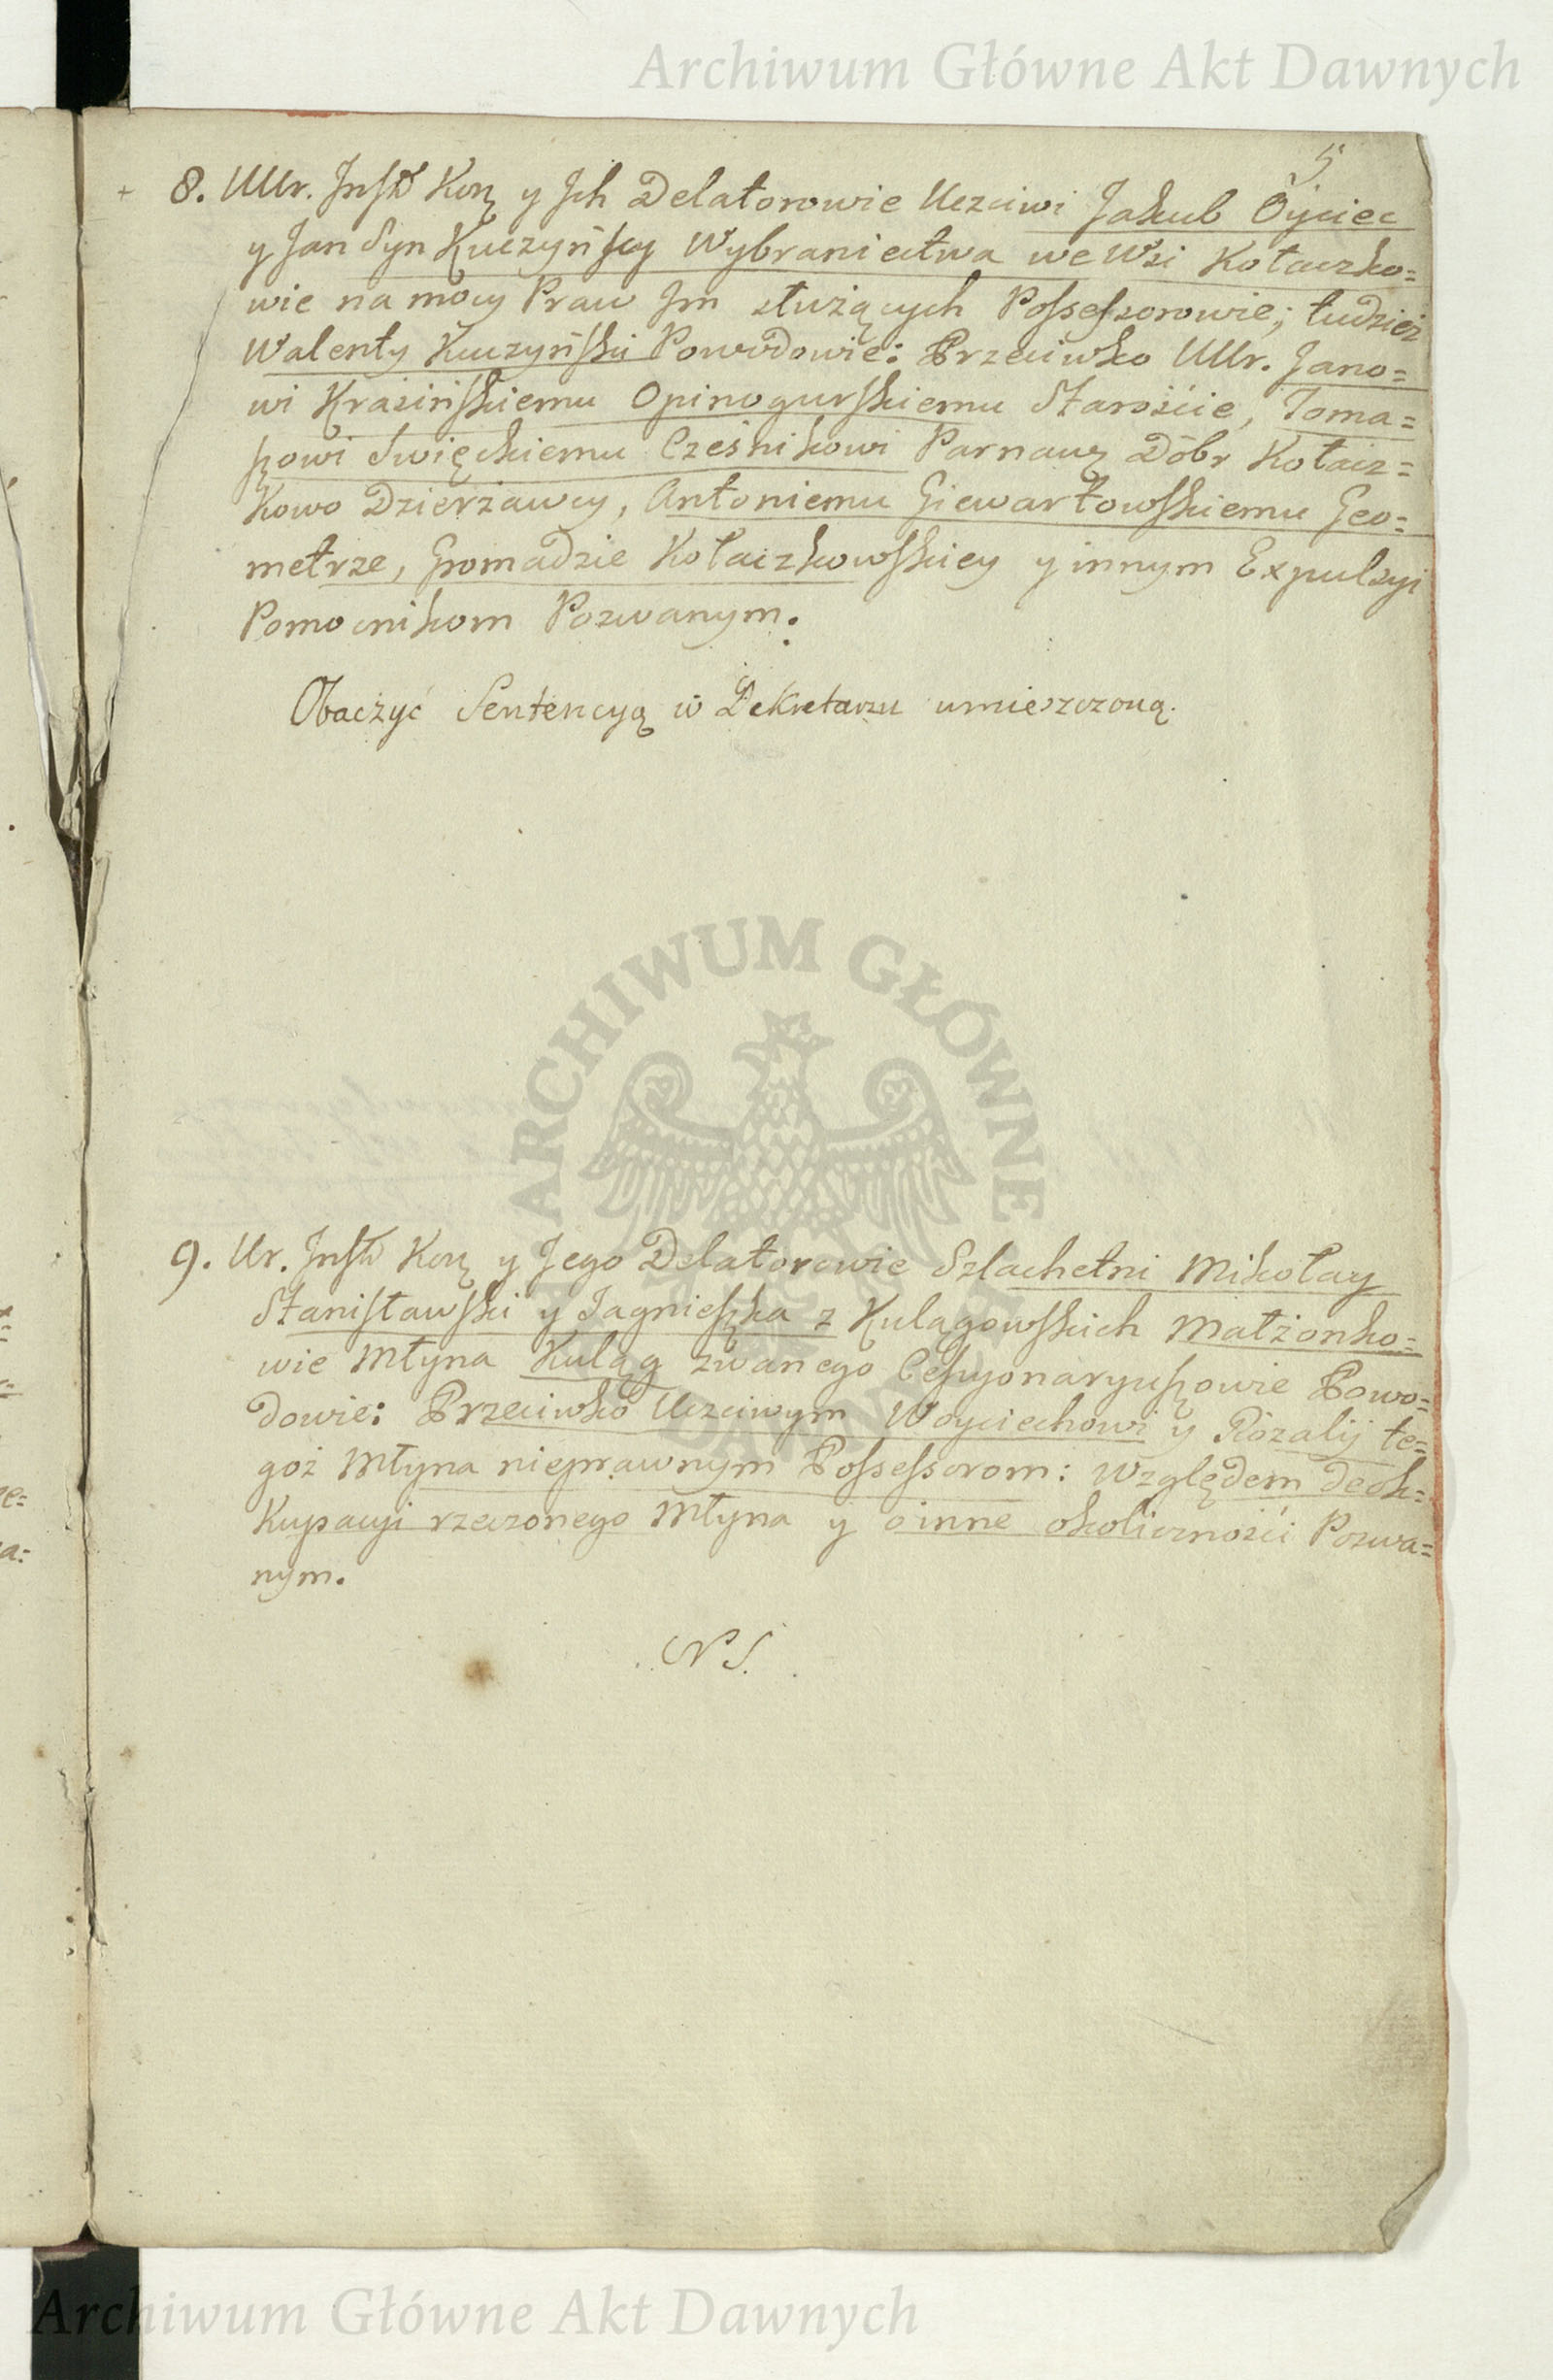 Archiwum Główne Akt Dawnych
5
+ 8. UUr. Inst: Kor: y Ich Delatorowie Uczciwi Jakub Oyciec
y Jan Syn Kuczyńscy Wybraniectwa we Wsi Kołaczko=
wie na mocy Praw Im służących Possessorowie; tudzież
Walenty Kuczyński Powodowie: Przeciwko UUr. Jano=
wi Krasińskiemu Opinogurskiemu Starośćie, Toma=
szowi Swięckiemu Cześnikowi Parnaw: Dóbr Kołacz=
kowo Dzierżawcy, Antoniemu Giewartowskiemu Geo=
metrze, Gromadzie Kołaczkowskiey y innym Expulsyi
Pomocnikom Pozwanym.
Obaczyć Sentencyą w Dekretarzu umieszczoną.
ARCHIWUM GŁÓWNE AKT DAWNYCH
9. Ur. Inst: Kor: y Jego Delatorowie Szlachetni Mikołay
Stanisławski y Jagnieszka z Kulągowskich Małżonko=
wie Młyna Kuląg zwanego Cessyonaryuszowie Powo=
dowie: Przeciwko Uczciwym Woyciechowi y Rozalij te=
goż Młyna nieprawnym Possessorom: Względem Deok=
kupacyi rzeczonego Młyna y o inne okoliczności Pozwa=
nym.
N S.
Archiwum Główne Akt Dawnych